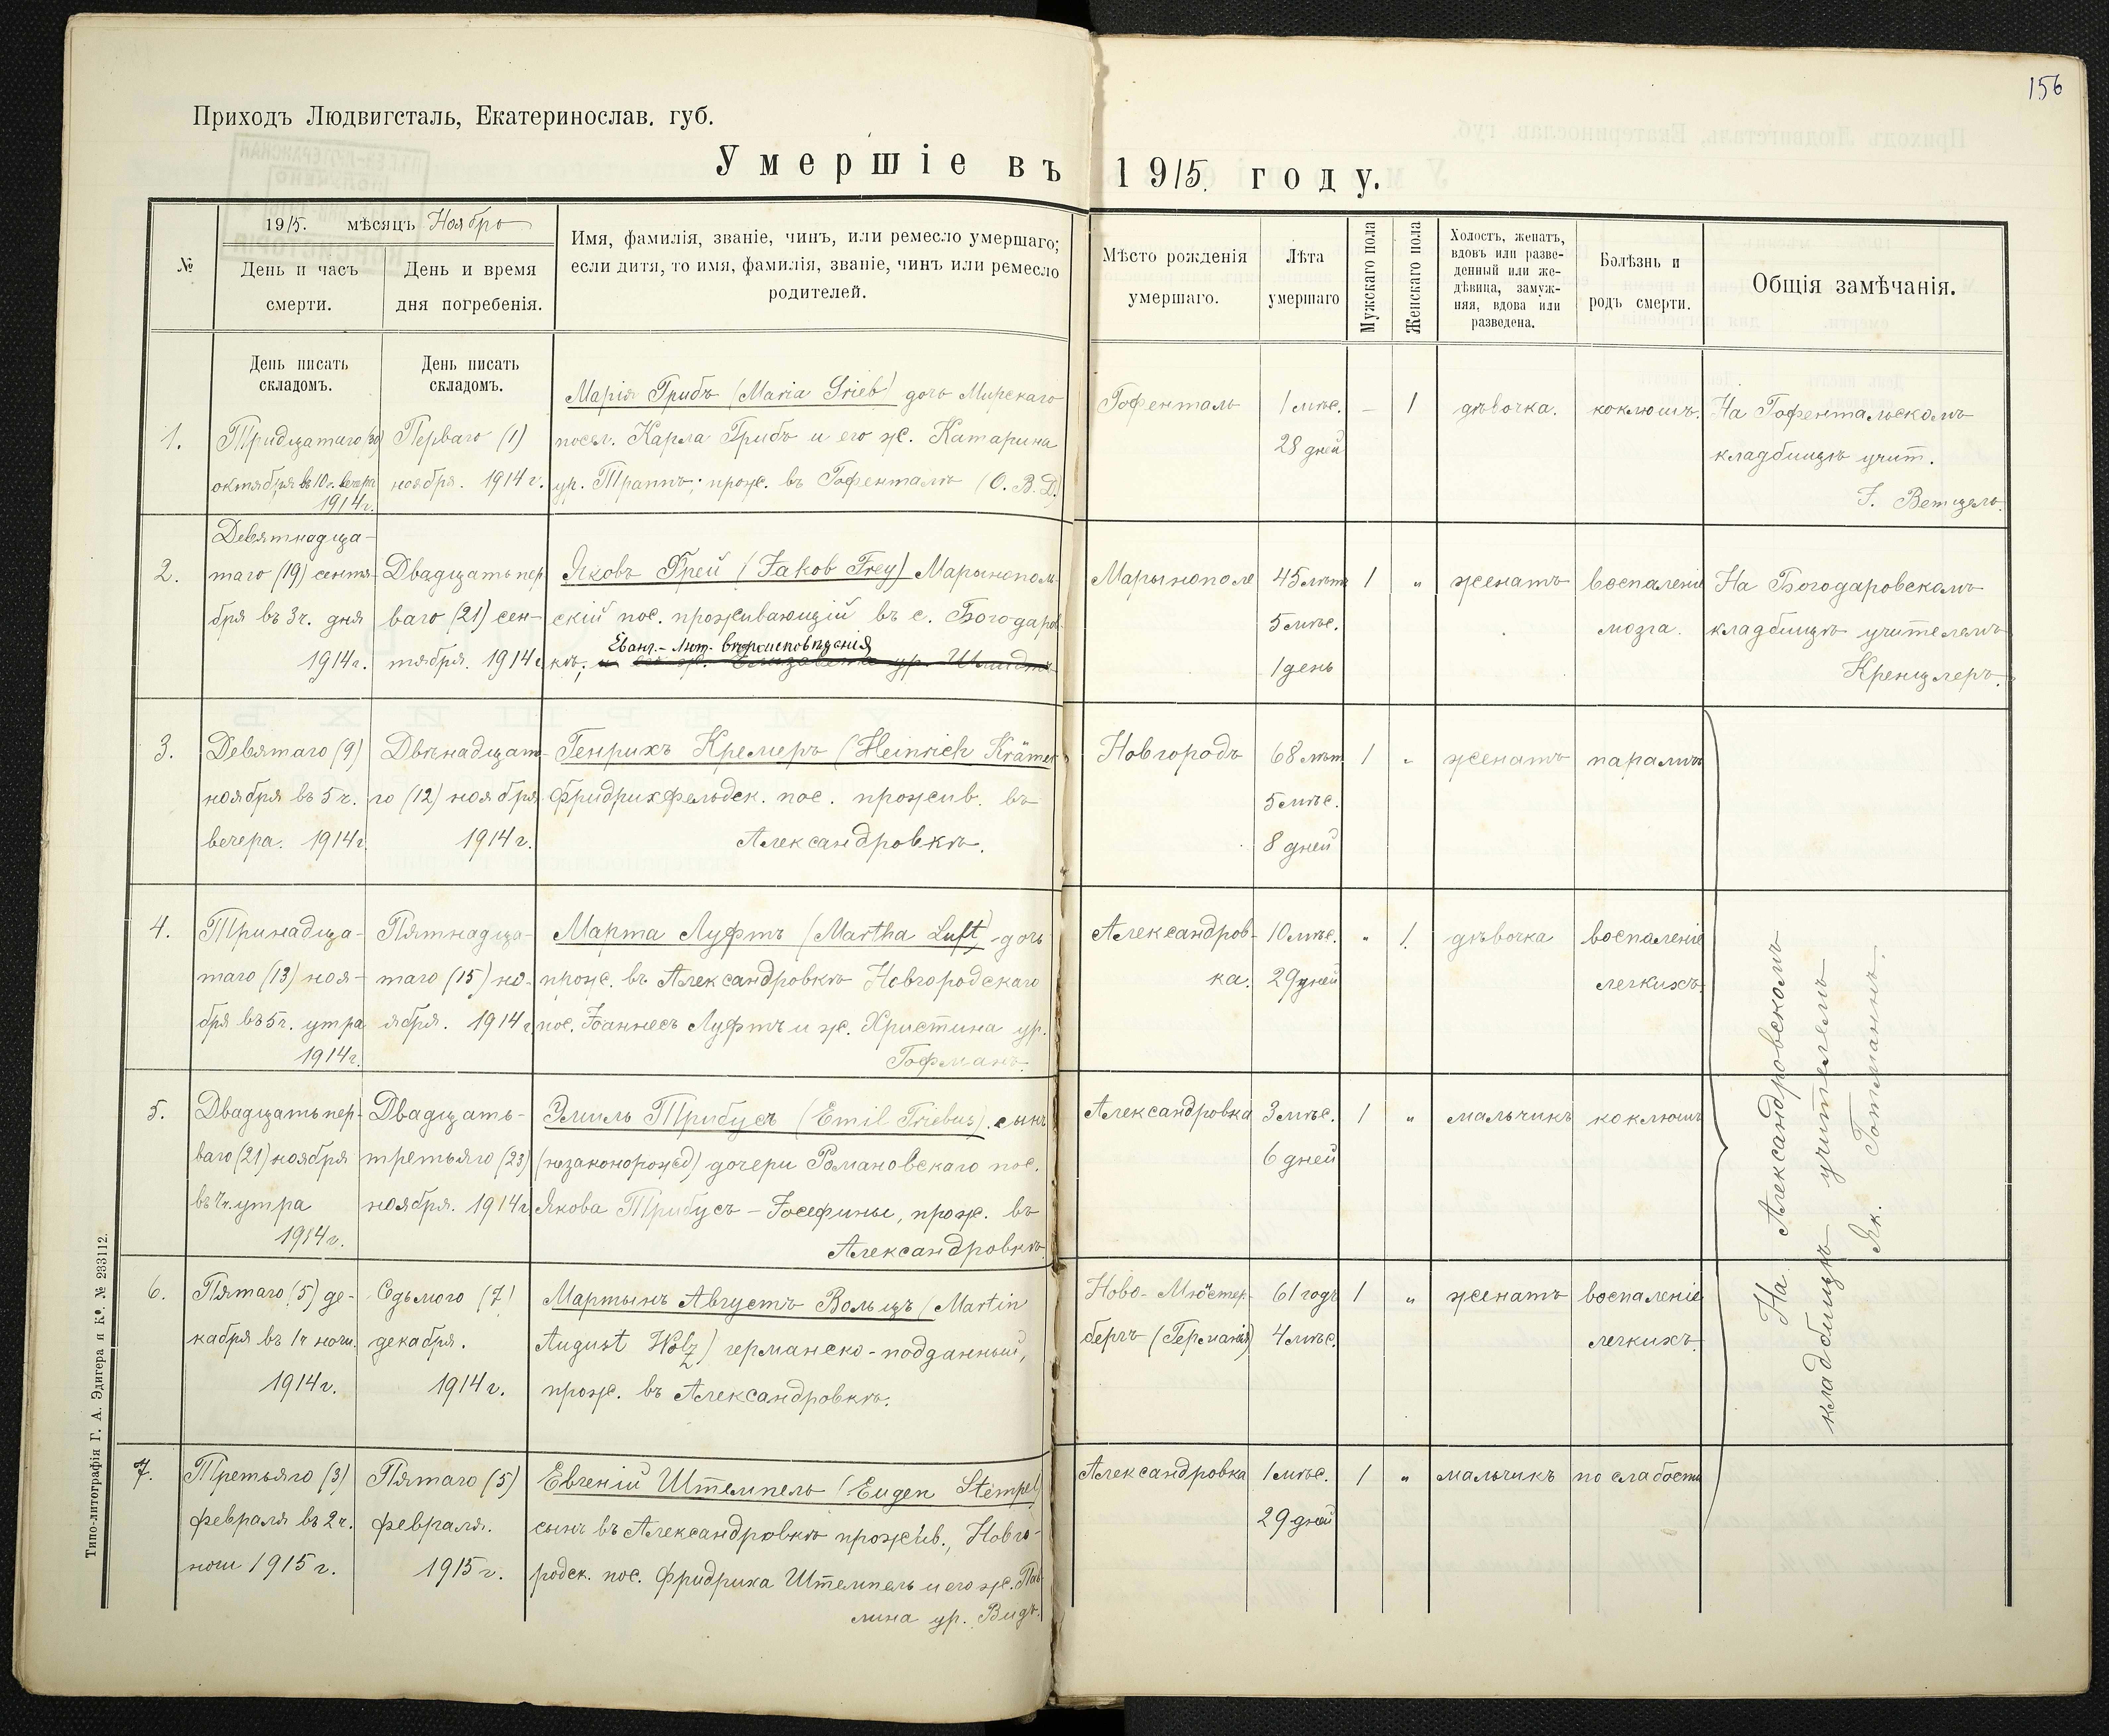 156
Приходъ Людвигсталь, Екатеринослав. губ.
Умершіе въ 1915. году.
№
1915. мѣсяцъ Ноябрь
День и часъ смерти.
День и время дня погребенія.
Имя, фамилія, званіе, чинъ, или ремесло умершаго;
если дитя, то имя, фамилія, званіе, чинъ или ремесло
родителей.
Мѣсто рожденія
умершаго.
Лѣта
умершаго
Мужскаго пола
Женскаго пола
Холостъ, женатъ,
вдовъ или разве-
денный или же-
дѣвица, замуж-
няя, вдова или
разведена.
Болѣзнь и
родъ смерти.
Общія замѣчанія.
День писать
складомъ.
День писать
складомъ.
1.
Тридцатаго (30)
октября въ 10 ч. вечера
1914 г.
Перваго (1)
ноября. 1914 г.
Марія Грибъ (Maria Grieb) дочь Мирскаго
посел. Карла Грибъ и его ж. Катарина
ур. Траппъ; прож. въ Гофенталѣ (О. В. Д.)
Гофенталь
1 мѣс.
28 дней
–
1
дѣвочка.
коклюшъ.
На Гофентальскомъ
кладбищѣ учит.
І. Ветцель.
2.
Девятнадца-
таго (19) сентя-
бря въ 3 ч. дня
1914 г.
Двадцать пер
ваго (21) сен-
тября. 1914 г.
Яковъ Фрей (Jakob Frey) Марьинополь-
скій пос. проживающій въ с. Богодаров-
Еванг.-Лют. вѣроисповѣданія
кѣ, и его ж. Елизавета ур. Шмидтъ
Марьинополе
45 лѣтъ
5 мѣс.
1 день
1
"
женатъ
воспаленіе
мозга.
На Богодаровскомъ
кладбищѣ учителемъ
Кренцлеръ.
3.
Девятаго (9)
ноября въ 5 ч.
вечера. 1914 г.
Двѣнадцата-
го (12) ноября
1914 г.
Генрихъ Кремеръ (Heinrich Krämer)
Фридрихфельдск. пос. прожив. въ
Александровкѣ.
Новгородъ
68 лѣт
5 мѣс.
8 дней
1
"
женатъ
параличъ
4.
Тринадца-
таго (13) ноя-
бря въ 5 ч. утра
1914 г.
Пятнадца-
таго (15) но-
ября. 1914 г.
Марта Луфтъ (Martha Luft) - дочь
прож. въ Александровкѣ Новгородскаго
пос. Іоаннесъ Луфтъ и ж. Христина ур.
Гофманъ.
Александров-
ка.
10 мѣс.
29 дней
"
1
дѣвочка
воспаленіе
легкихъ.
5.
Двадцать пер-
ваго (21) ноября
утра
1914 г.
Двадцать-
третьяго (23)
ноября. 1914 г.
Эмиль Трибусъ (Emil Triebus). сынъ
(незаконорожд) дочери Романовскаго пос.
Якова Трибусъ - Іосефины, прож. въ
Александровкѣ.
Александровка
3 мѣс.
6 дней
1
"
мальчикъ
коклюшъ
6.
Пятаго (5) де-
кабря въ 1 ч ночи.
1914 г.
Седьмого (7)
декабря.
1914 г.
Мартынъ Августъ Вольцъ (Martin
August Wolz) германско-подданный,
прож. въ Александровкѣ.
Ново-Мюстер-
бергъ (Германія)
61 годъ
4 мѣс.
1
"
женатъ
воспаленіе
легкихъ.
7.
Третьяго (3)
февраля въ 2 ч.
ночи 1915 г.
Пятаго (5)
февраля.
1915 г.
Евгеній Штемпель (Eugen Stempel)
сынъ въ Александровкѣ прожив., Новго-
родск. пос. Фридриха Штемпель и его ж. Пау-
лина ур. Видъ.
Александровка
1 мѣс.
29 дней
1
"
мальчикъ
по слабости
На Александровскомъ
кладбищѣ учителемъ
Як. Готманнъ.
Типо-литографія Г. А. Эдигера и Кº. № 233112.